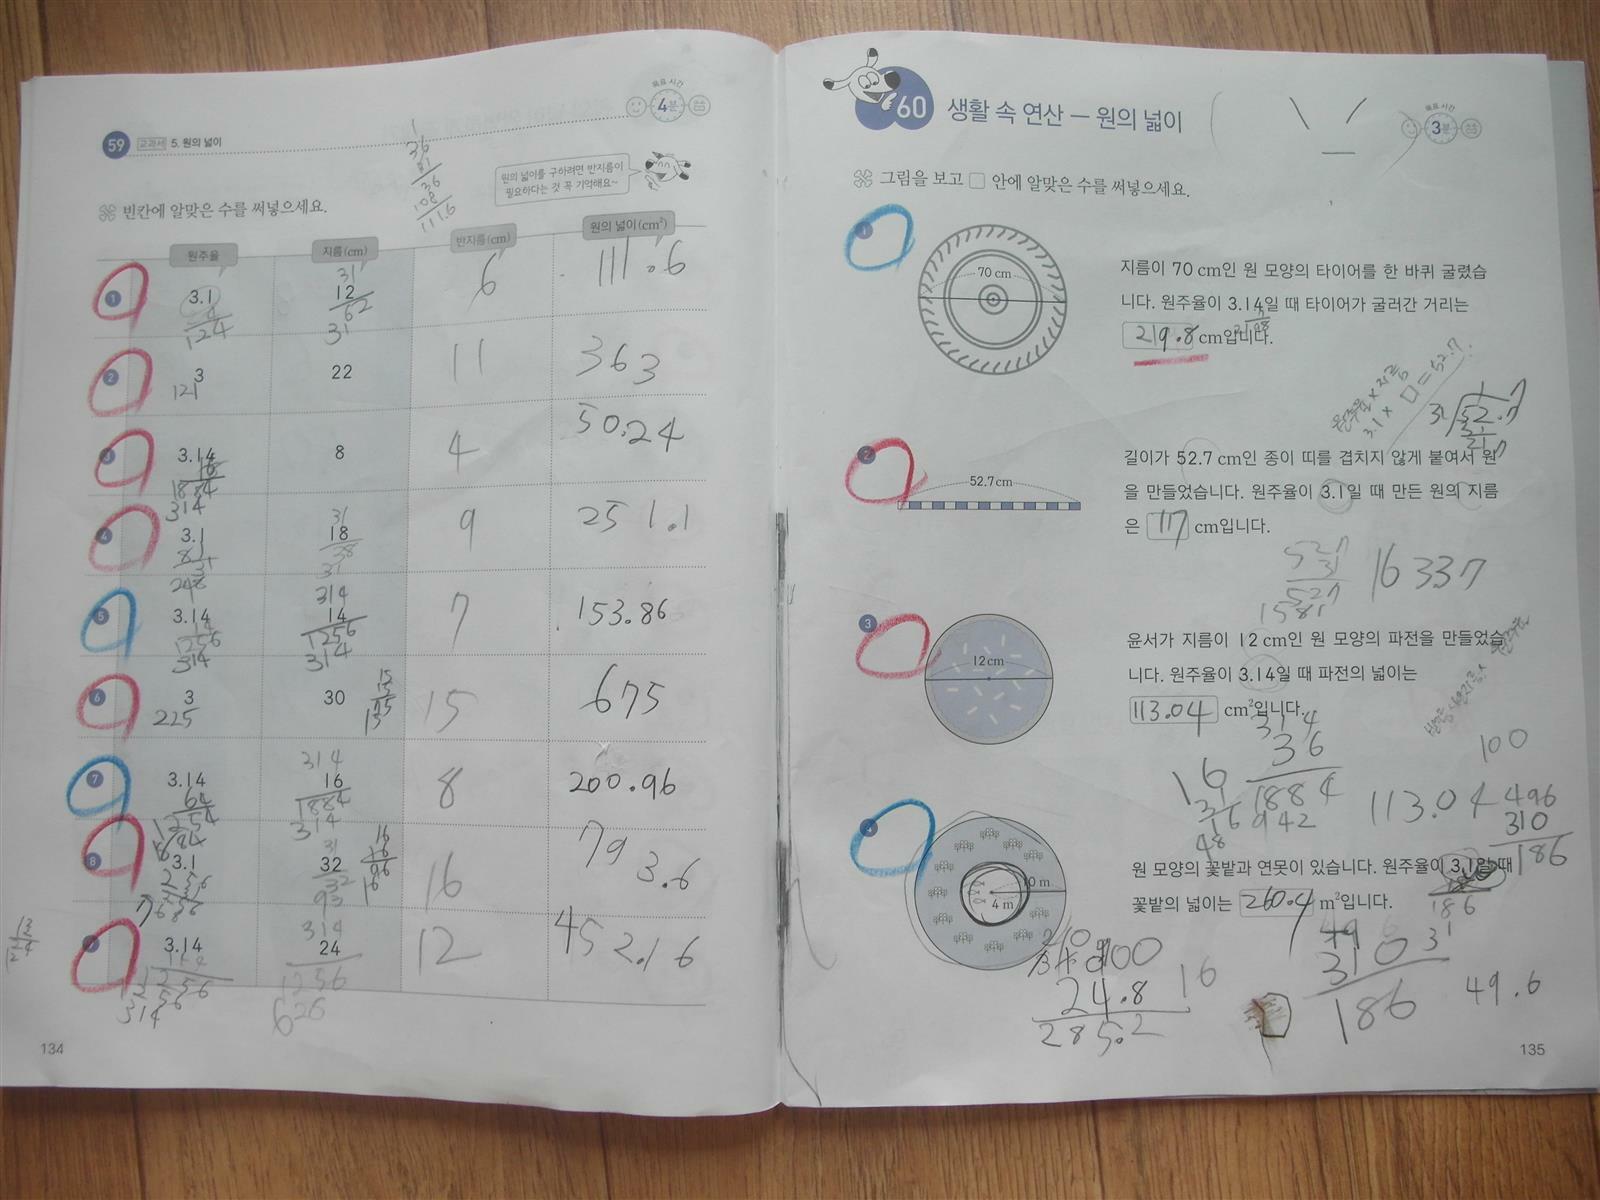 59 교과서 5. 원의 넓이
목표 시간
4분
원의 넓이를 구하려면 반지름이
필요하다는 것 꼭 기억해요~
빈칸에 알맞은 수를 써넣으세요.
36
36
108
111.6
원주율 지름(cm) 반지름(cm) 원의 넓이(cm²)
1 3.1 12 6 111.6
124 62
31
2 3 22 11 363
121
3 3.14 8 4 50.24
16
1884
314
4 3.1 18 9 251.1
31
81
248
5 3.14 14 7 153.86
314
1256 1256
314 314
6 3 30 15 675
225
15
15
75
15
7 3.14 16 8 200.96
314
64
1884
314
8 3.1 32 16 793.6
31
93
16
16
96
16
9 3.14 24 12 452.16
314
1256
314 628
134
60 생활 속 연산 – 원의 넓이
목표 시간
3분
그림을 보고 □ 안에 알맞은 수를 써넣으세요.
1
70 cm
지름이 70 cm인 원 모양의 타이어를 한 바퀴 굴렸습
니다. 원주율이 3.14일 때 타이어가 굴러간 거리는
219.8 cm입니다.
원주율 × 지름
3.1 × □ = 52.7
31 52.7
31
217
2
52.7 cm
길이가 52.7 cm인 종이 띠를 겹치지 않게 붙여서 원
을 만들었습니다. 원주율이 3.1일 때 만든 원의 지름
은 17 cm입니다.
527
31
527
1581
16337
3
12 cm
윤서가 지름이 12 cm인 원 모양의 파전을 만들었습
니다. 원주율이 3.14일 때 파전의 넓이는
113.04 cm²입니다.
314
36
1884
942
113.04
16
31
16
48
100
496
310
186
4
10 m
4 m
원 모양의 꽃밭과 연못이 있습니다. 원주율이 3.1일 때
꽃밭의 넓이는 260.4 m²입니다.
186
24.8
285.2
16
310
186
31
49.6
135